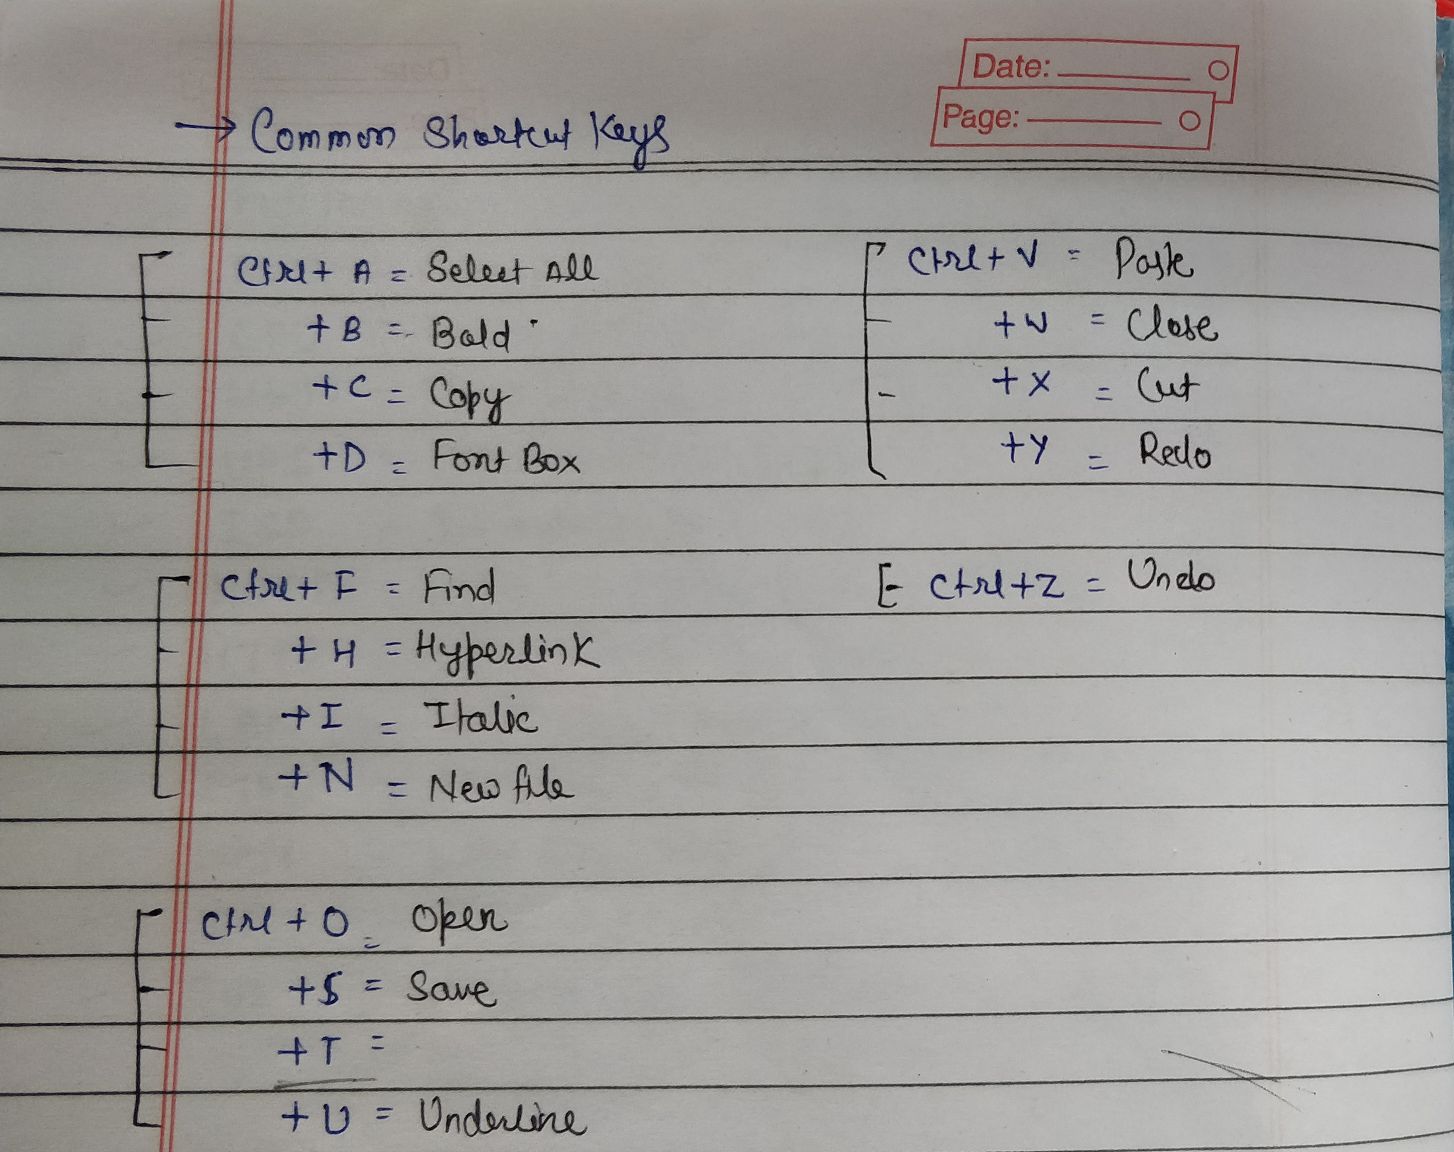 Date:
Page:
→ Common Shortcut Keys
Ctrl + A = Select All
+ B = Bold
+ C = Copy
+ D = Font Box
Ctrl + F = Find
+ H = Hyperlink
+ I = Italic
+ N = New file
Ctrl + O = Open
+ S = Save
+ T =
+ U = Underline
Ctrl + V = Paste
+ W = Close
+ X = Cut
+ Y = Redo
Ctrl + Z = Undo